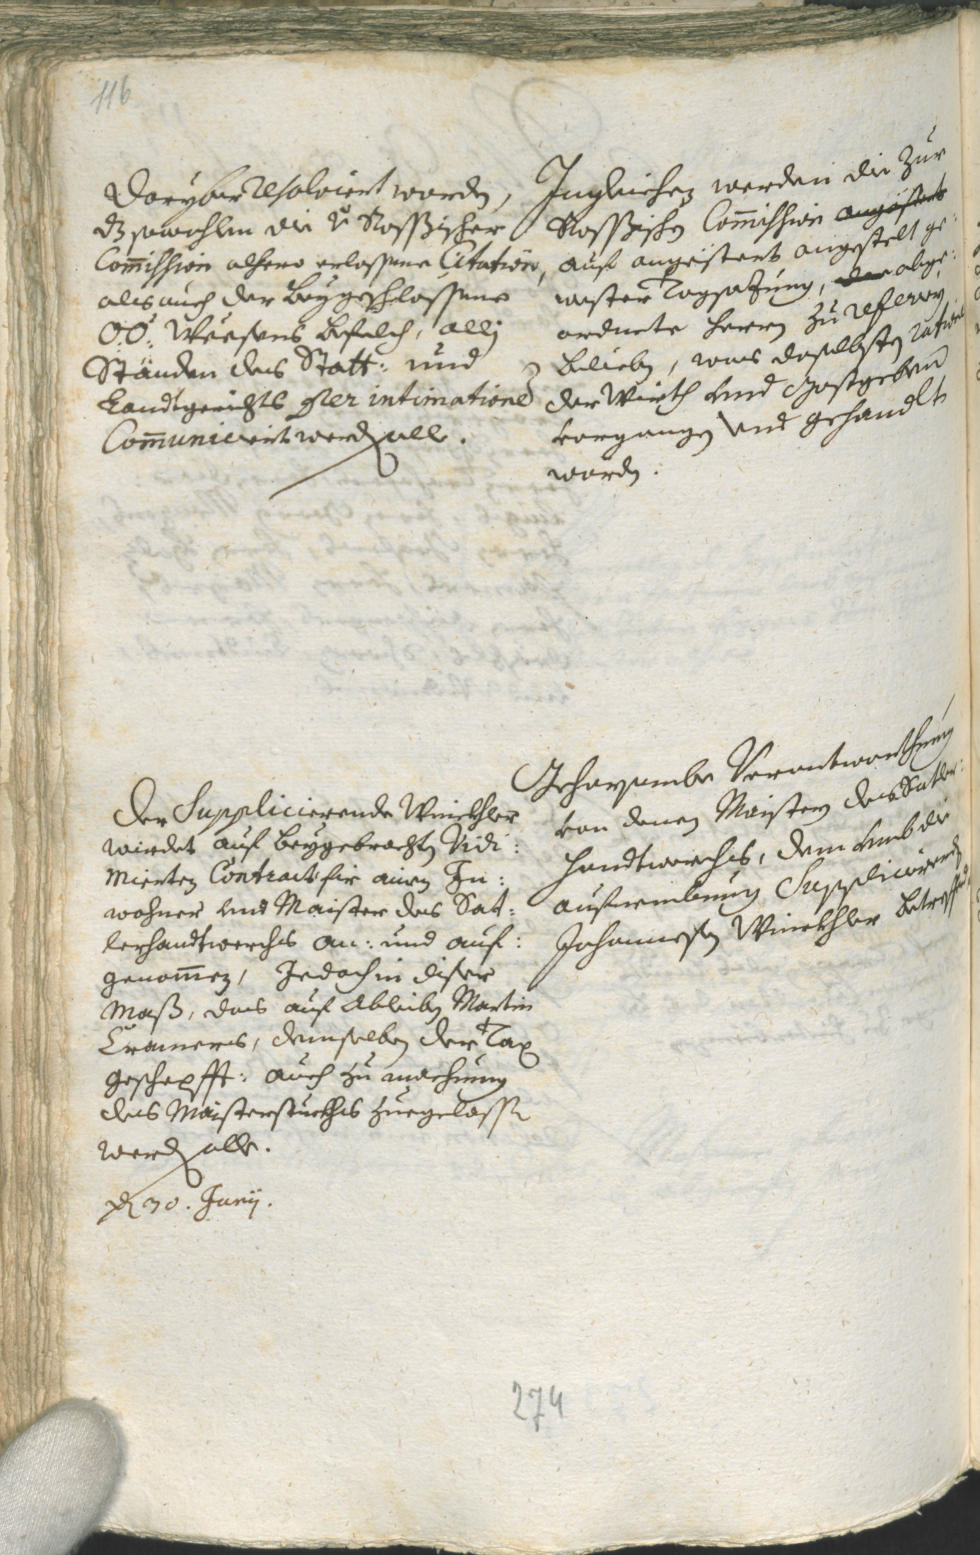 116
Darüber resolviert worden,
dz sowohlen die v: Rossische
Commission alhero erlassene Citation,
als auch der beygeschlossene
O:Ö: Weesens befelch, allj
Ständen des Statt: und
Landtgerichts per intimationes
Communiciert werden solle.
Ingleichen werden die zur
Rossischen Commission angestert
auf angestert angestelt ge:
wester Tagsatzung, der abge:
ordnete herrn zu referirn
belieben, was daselbsten ratione
der Würth und Gastgeben
vorgangen und gehandlt
worden.
Der Supplicierende Winckhler
würdet auf beygebrachten Vidi:
mierten Contract für ainen In:
wohner und Maister des Sat:
lerhandtwerchs an: und auf:
genommen, Jedoch in diser
Maß, das auf Ableiben Martin
Cramers, demselben der Tax
geschepfft: auch zu machung
des Maisterstuckhs zuegelassen
werden solle.
den 30. Junij.
Gehorsambe Verantworthung
von denen Maistern des Satler:
handtwerchs, dem umb die
aufnembung Supplicierenden
Johannesen Winckhler betreffend
274